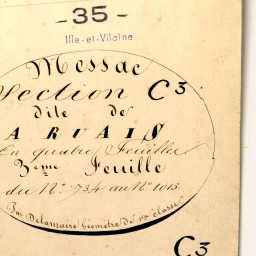 -35-
Ille-et-Vilaine
Messac
Section C3
dite de
ARUAIS
En quatre Feuilles
3eme Feuille
du No. 734 au No. 1013.
Par Delamaire Géomètre de 1re classe
C3